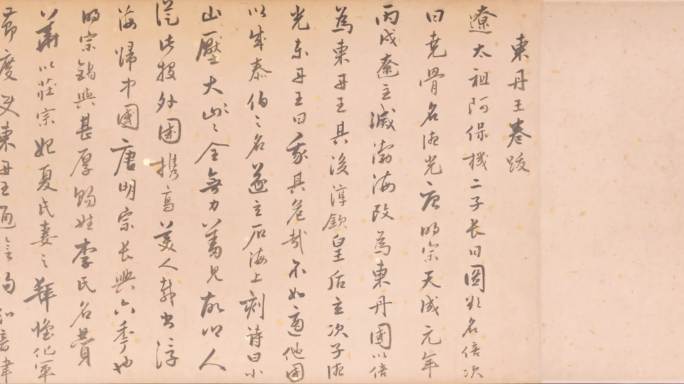 東丹王卷跋
遼太祖阿保機二子長曰圖欲名倍次
曰堯骨名德光唐明宗天成元年
丙戌遼主滅渤海改為東丹國以倍
為東丹王其後淳欽皇后立次子德
光東丹王曰我其危哉不如適他國
以成泰伯之名遂立石海上刻詩曰小
山壓大山〻全無力羞見故鄉人
從此投外國携高美人載書浮
海歸中國唐明宗長興六年也
明宗錫與甚厚賜姓李氏名贊
華以莊宗妃夏氏妻之拜懷化軍
節度東丹王通音律